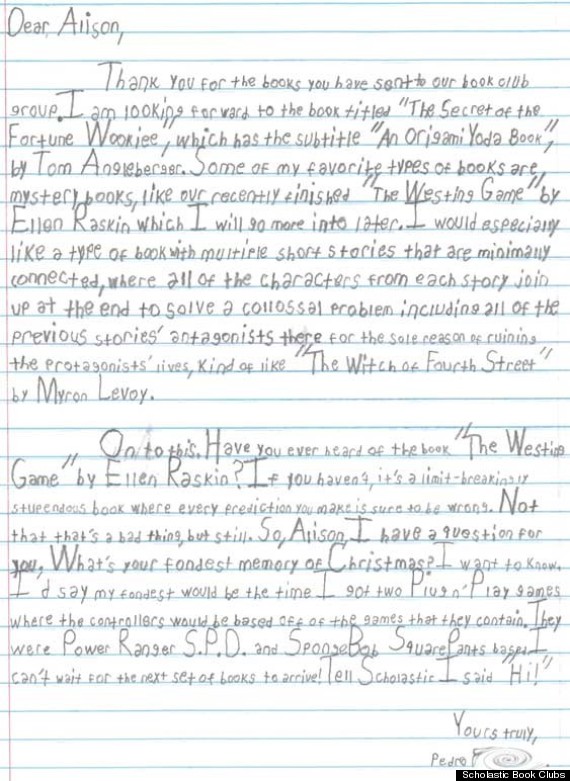 Dear Alison,
Thank you for the books you have sent to our book club
group. I am looking forward to the book titled "The Secret of the
Fortune Wookiee", which has the subtitle "An Origami Yoda Book",
by Tom Angleberger. Some of my favorite types of books are
mystery books, like our recently finished "The Westing Game" by
Ellen Raskin which I will go more into later. I would especially
like a type of book with multiple short stories that are minimally
connected, where all of the characters from each story join
up at the end to solve a collossal problem including all of the
previous stories' antagonists there for the sole reason of ruining
the protagonists' lives, kind of like "The Witch of Fourth Street"
by Myron Levoy.
On to this. Have you ever heard of the book "The Westing
Game" by Ellen Raskin? If you haven't, it's a limit-breakingly
stupendous book where every prediction you make is sure to be wrong. Not
that that's a bad thing, but still. So, Alison, I have a question for
you, What's your fondest memory of Christmas? I want to know.
I'd say my fondest would be the time I got two Plug n' Play games
where the controllers would be based off of the games that they contain. They
were Power Ranger S.P.D. and SpongeBob SquarePants based. I
can't wait for the next set of books to arrive! Tell Scholastic I said "Hi!"
Yours truly,
Pedro
Scholastic Book Clubs